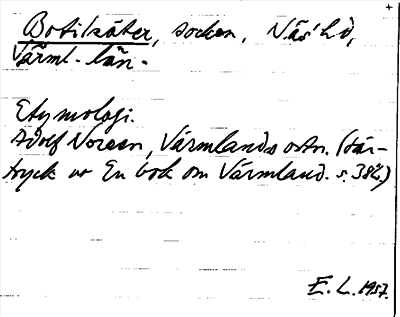 Botilsäter, socken, Näs' hd,
Värml. län.
Etymologi.
Adolf Noreen, Värmlands ortn. (Sär-
tryck ur En bok om Värmland. s. 382)
E. L. 1957.